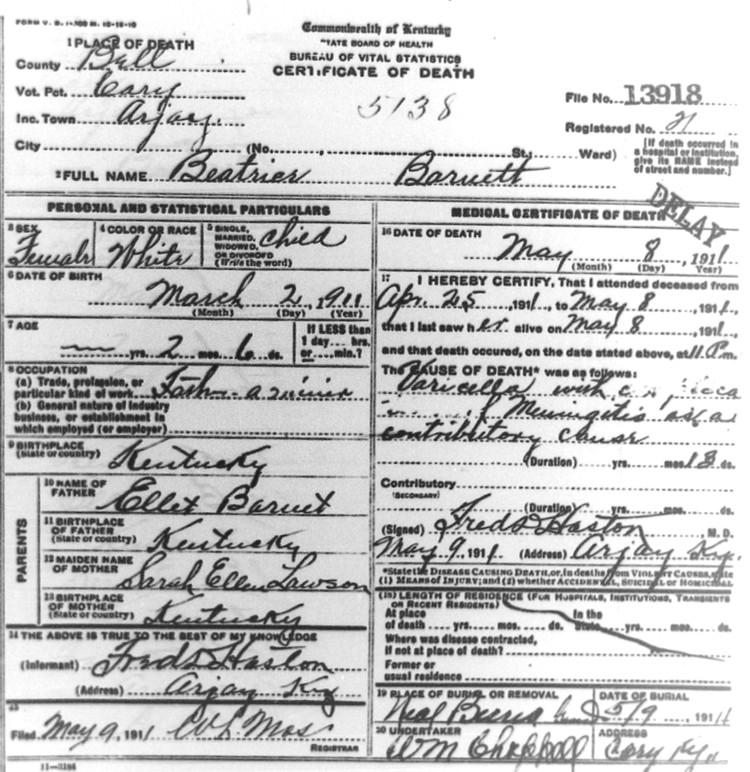 Commonwealth of Kentucky
STATE BOARD OF HEALTH
BUREAU OF VITAL STATISTICS
CERTIFICATE OF DEATH
1 PLACE OF DEATH
County Bell
Vot. Pct. Cary
Inc. Town Arjay
City (No. St.; Ward)
5138
File No. 13918
Registered No. 21
[If death occurred in a hospital or institution, give its NAME instead of street and number.]
2 FULL NAME Beatrice Barnett
DELAY
PERSONAL AND STATISTICAL PARTICULARS
3 SEX
Female
4 COLOR OR RACE
White
5 SINGLE, MARRIED, WIDOWED, OR DIVORCED (Write the word)
child
6 DATE OF BIRTH
March 2, 1911
(Month) (Day) (Year)
7 AGE
yrs. 2 mos. 6 ds.
If LESS than 1 day hrs. or min.?
8 OCCUPATION
(a) Trade, profession, or particular kind of work Fath a miner
(b) General nature of industry business, or establishment in which employed (or employer)
9 BIRTHPLACE (State or country)
Kentucky
PARENTS
10 NAME OF FATHER
Barnet
11 BIRTHPLACE OF FATHER (State or country)
Kentucky
12 MAIDEN NAME OF MOTHER
Sarah Ellen Lawson
13 BIRTHPLACE OF MOTHER (State or country)
Kentucky
14 THE ABOVE IS TRUE TO THE BEST OF MY KNOWLEDGE
(Informant) Fred D Haston
(Address) Arjay Ky
15
Filed May 9, 1911
REGISTRAR
11-3184
MEDICAL CERTIFICATE OF DEATH
16 DATE OF DEATH
May 8, 1911
(Month) (Day) Year)
17 I HEREBY CERTIFY, That I attended deceased from
Apr. 25, 1911, to May 8, 1911,
that I last saw her alive on May 8, 1911,
and that death occured, on the date stated above, at 11 P.m.
The CAUSE OF DEATH* was as follows:
Varicella with
Meningetis as a
contributory cause
(Duration) yrs. mos. 13 ds.
Contributory
(SECONDARY)
(Duration) yrs. mos. ds.
(Signed) Fred D Haston M. D.
May 9, 1911 (Address) Arjay Ky.
*State the DISEASE CAUSING DEATH, or, in deaths from VIOLENT CAUSES, state
(1) MEANS OF INJURY; and (2) whether ACCIDENTAL, SUICIDAL or HOMICIDAL
(18) LENGTH OF RESIDENCE (FOR HOSPITALS, INSTITUTIONS, TRANSIENTS
OR RECENT RESIDENTS)
At place of death yrs. mos. ds. In the State yrs. mos. ds.
Where was disease contracted,
if not at place of death?
Former or
usual residence
19 PLACE OF BURIAL OR REMOVAL
DATE OF BURIAL
5/9, 1911
20 UNDERTAKER
Wm
ADDRESS
Cary Ky.